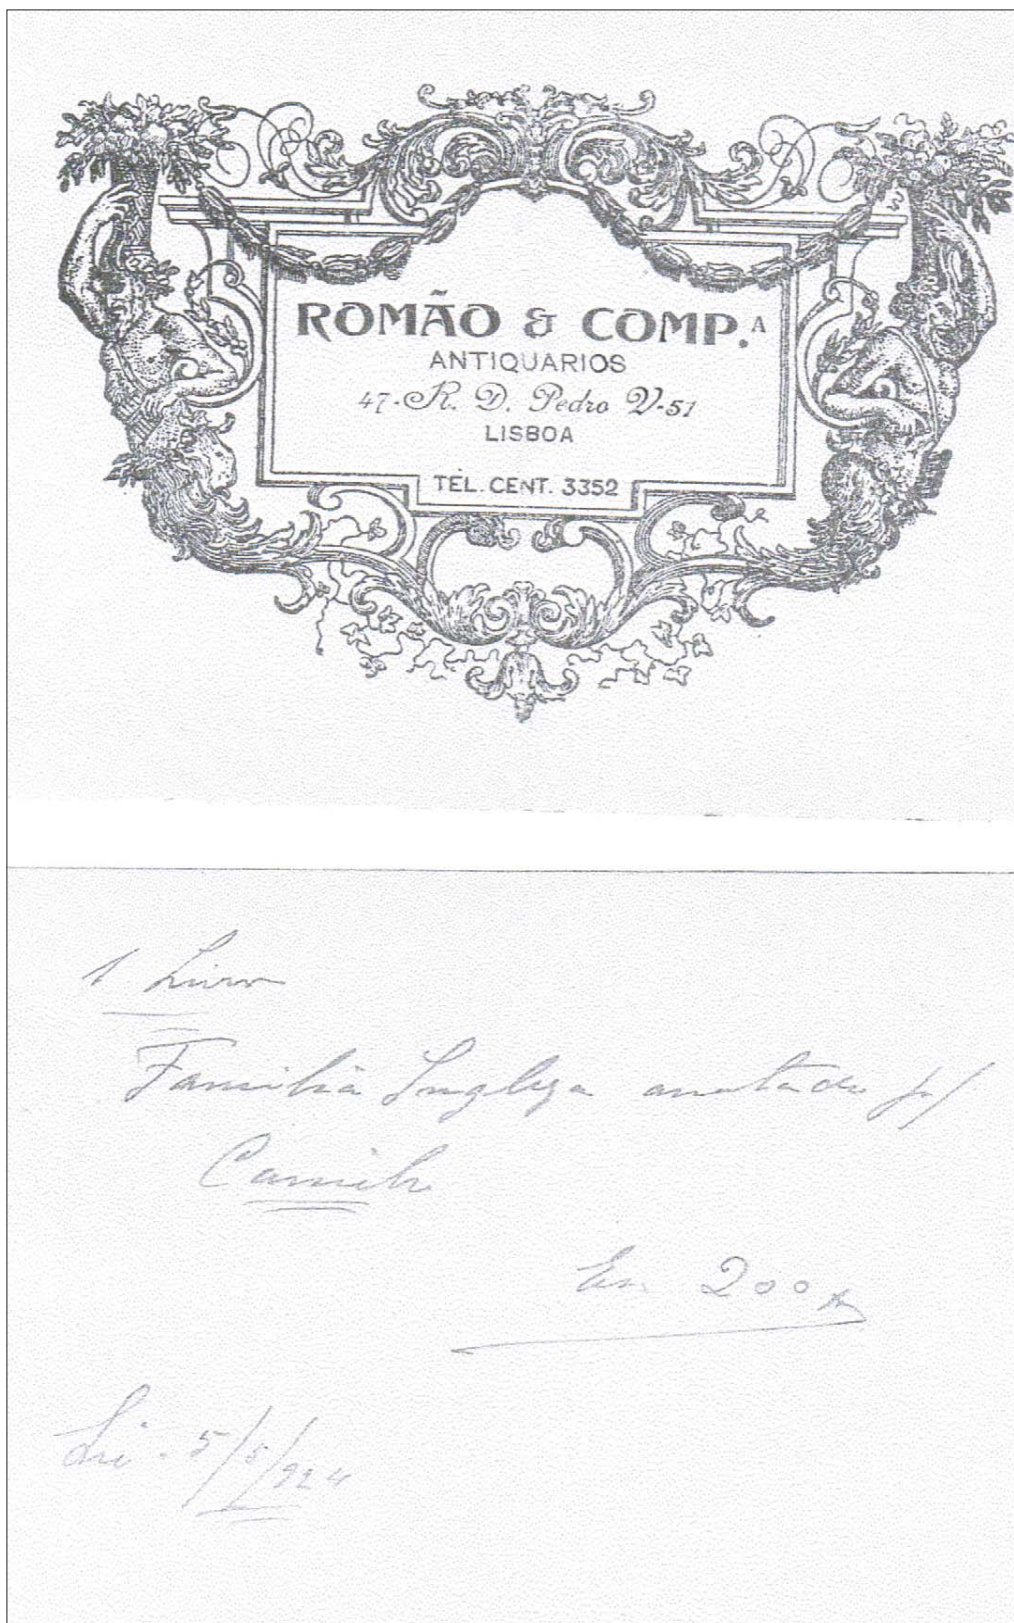 ROMÃO & COMP.ᴬ
ANTIQUARIOS
47-R. D. Pedro V-51
LISBOA
TÉL. CENT. 3352
1 Livro
Familia Ingleza anotado p/
Camilo
Esc. 200
Li - 5/5/924